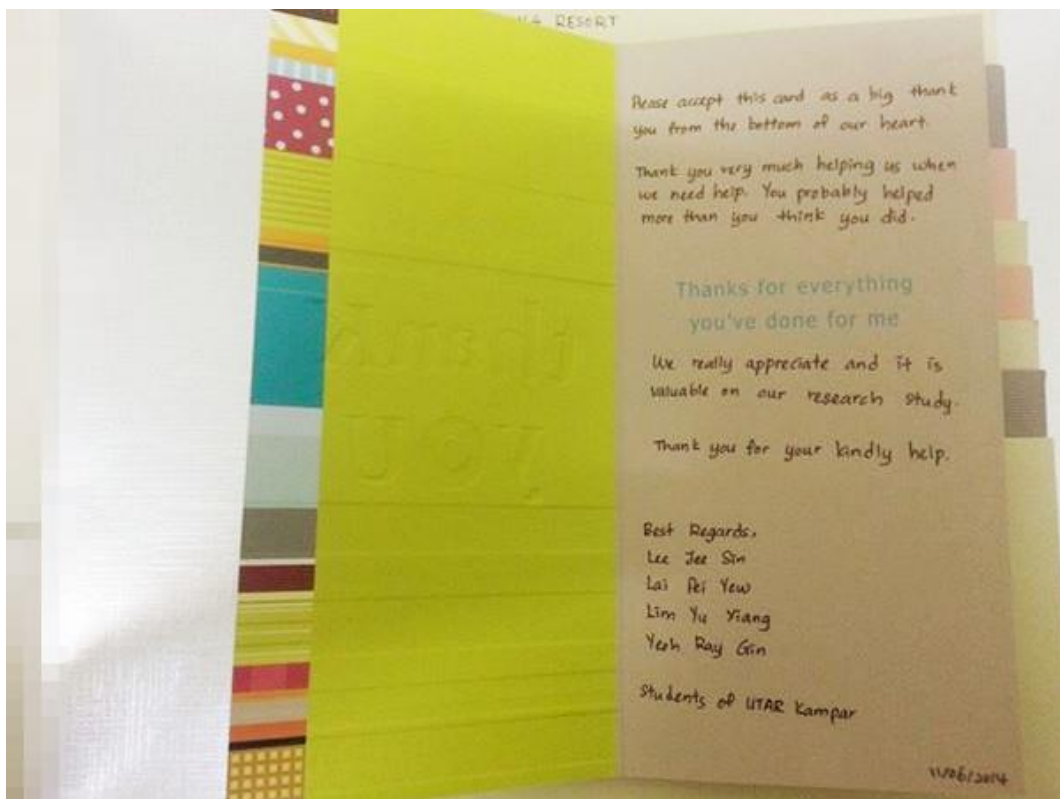 RESORT
Please accept this card as a big thank
you from the bottom of our heart.
Thank you very much helping us when
we need help. You probably helped
more than you think you did.
Thanks for everything
you've done for me
We really appreciate and it is
valuable on our research study.
Thank you for your kindly help.
Best Regards,
Lee Jee Sin
Lai Pei Yew
Lim Yu Xiang
Yeoh Ray Gin
Students of UTAR Kampar
11/08/2014